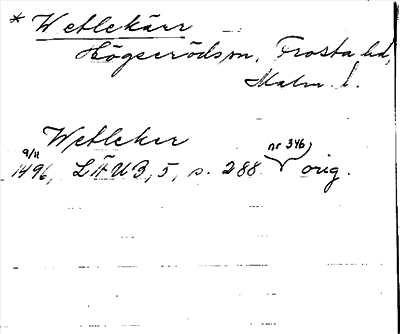 * Wetlekärr
Högserödsn, Frosta hd,
Malm. l.
Wetleker
9/11 nr 346
1496, LÄUB, 5, s. 288 orig.